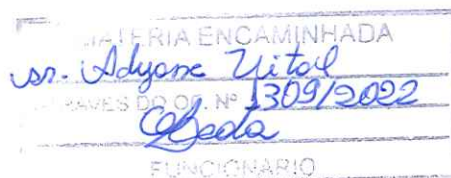 MATERIA ENCAMINHADA
sr. Adyone Vital
ATRAVES DO OF. Nº 1309/2022
FUNCIONARIO